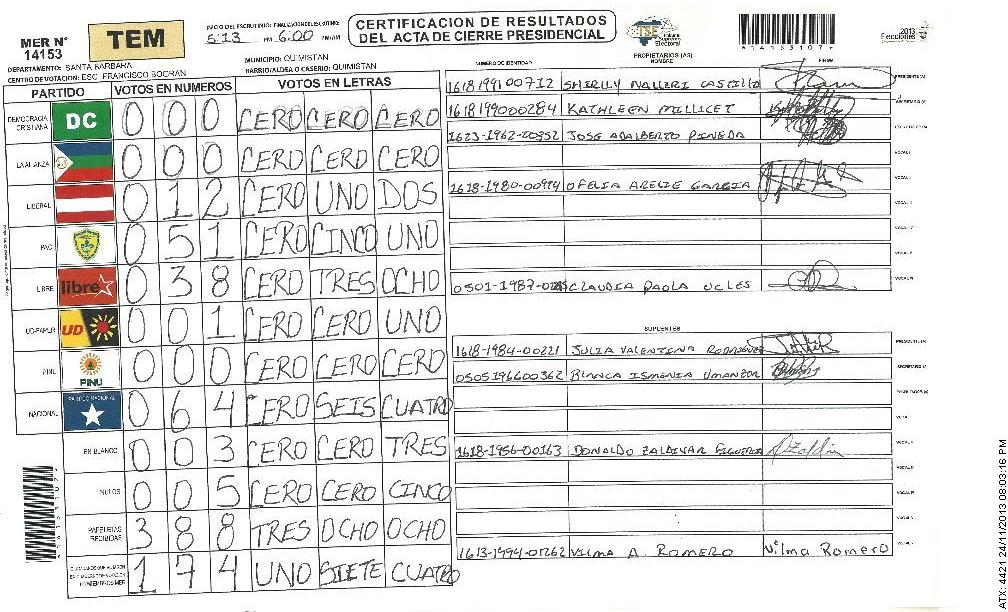 MER N° 14153
TEM
INICIO DEL ESCRUTINIO: 5:13 PM FINALIZACION DEL ESCRUTINIO: 6:00
CERTIFICACION DE RESULTADOS
DEL ACTA DE CIERRE PRESIDENCIAL
TSE Tribunal Supremo Electoral
2013 Elecciones
DEPARTAMENTO: SANTA BARBARA
MUNICIPIO: QUIMISTAN
CENTRO DE VOTACION: ESC. FRANCISCO BOGRAN
BARRIO/ALDEA O CASERIO: QUIMISTAN
PARTIDO VOTOS EN NUMEROS VOTOS EN LETRAS
DEMOCRACIA CRISTIANA DC 0 0 0 CERO CERO CERO
LA ALIANZA 0 0 0 CERO CERO CERO
LIBERAL 0 1 2 CERO UNO DOS
PAC 0 5 1 CERO CINCO UNO
LIBRE libre 0 3 8 CERO TRES OCHO
UD-FAPER UD 0 0 1 CERO CERO UNO
PINU PINU 0 0 0 CERO CERO CERO
NACIONAL PARTIDO NACIONAL 0 6 4 CERO SEIS CUATRO
EN BLANCO 0 0 3 CERO CERO TRES
NULOS 0 0 5 CERO CERO CINCO
PAPELETAS RECIBIDAS 3 8 8 TRES OCHO OCHO
1 7 4 UNO SIETE CUATRO
PROPIETARIOS (AS)
NUMERO DE IDENTIDAD NOMBRE FIRMA
1618199100712 SHIRLLY NALLERI CASTILLO PRESIDENTE(A)
1618199000284 KATHLEEN MILLICET SECRETARIO(A)
1623-1962-00352 JOSE ADALBERTO PINEDA
1618-1980-00974 OFELIA ARELIE GARCIA
0501-1987- CLAUDIA PAOLA UCLES
SUPLENTES
1618-1984-00221 JULIA VALENTINA RODRIGUEZ
0505196600362 BLANCA ISMENIA UMANZOR
1618-1956-00163 DONALDO ZALDIVAR FIGUEROA
1613-1994-01262 VILMA A. ROMERO Vilma Romero
ATX: 4421 24/11/2013 08:03:16 PM